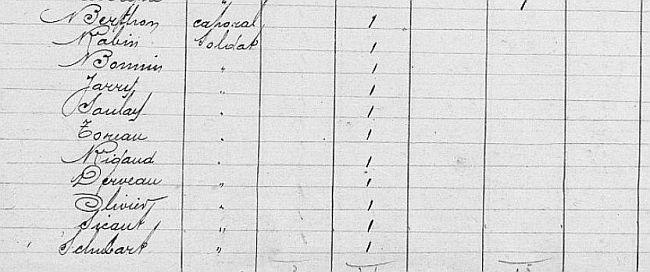 Berthon caporal 1
Rabin Soldat 1
Bonnin " 1
Jarry " 1
Soulay " 1
Toreau " 1
Rigaud " 1
Derveau " 1
Olivier " 1
Sicaut " 1
Schubart " 1